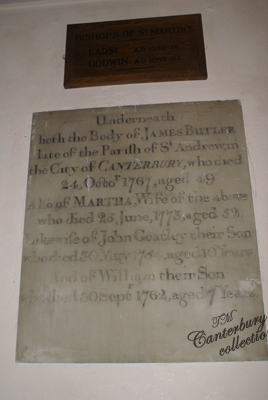 BISHOPS OF ST MARTINS
GODWIN
Underneath
lieth the Body of JAMES BUTLER
late of the Parish of St. Andrew, in
the City of CANTERBURY, who died
24, Octor. 1767, aged 49
Also of MARTHA, Wife of the above
who died 25, June, 1773, aged
Likewise of John Goatley their Son
who died 30 May aged 10 Years
And of William their Son
who died 30 Septr. 1762, aged 7 Years
TM
Canterbury
collection